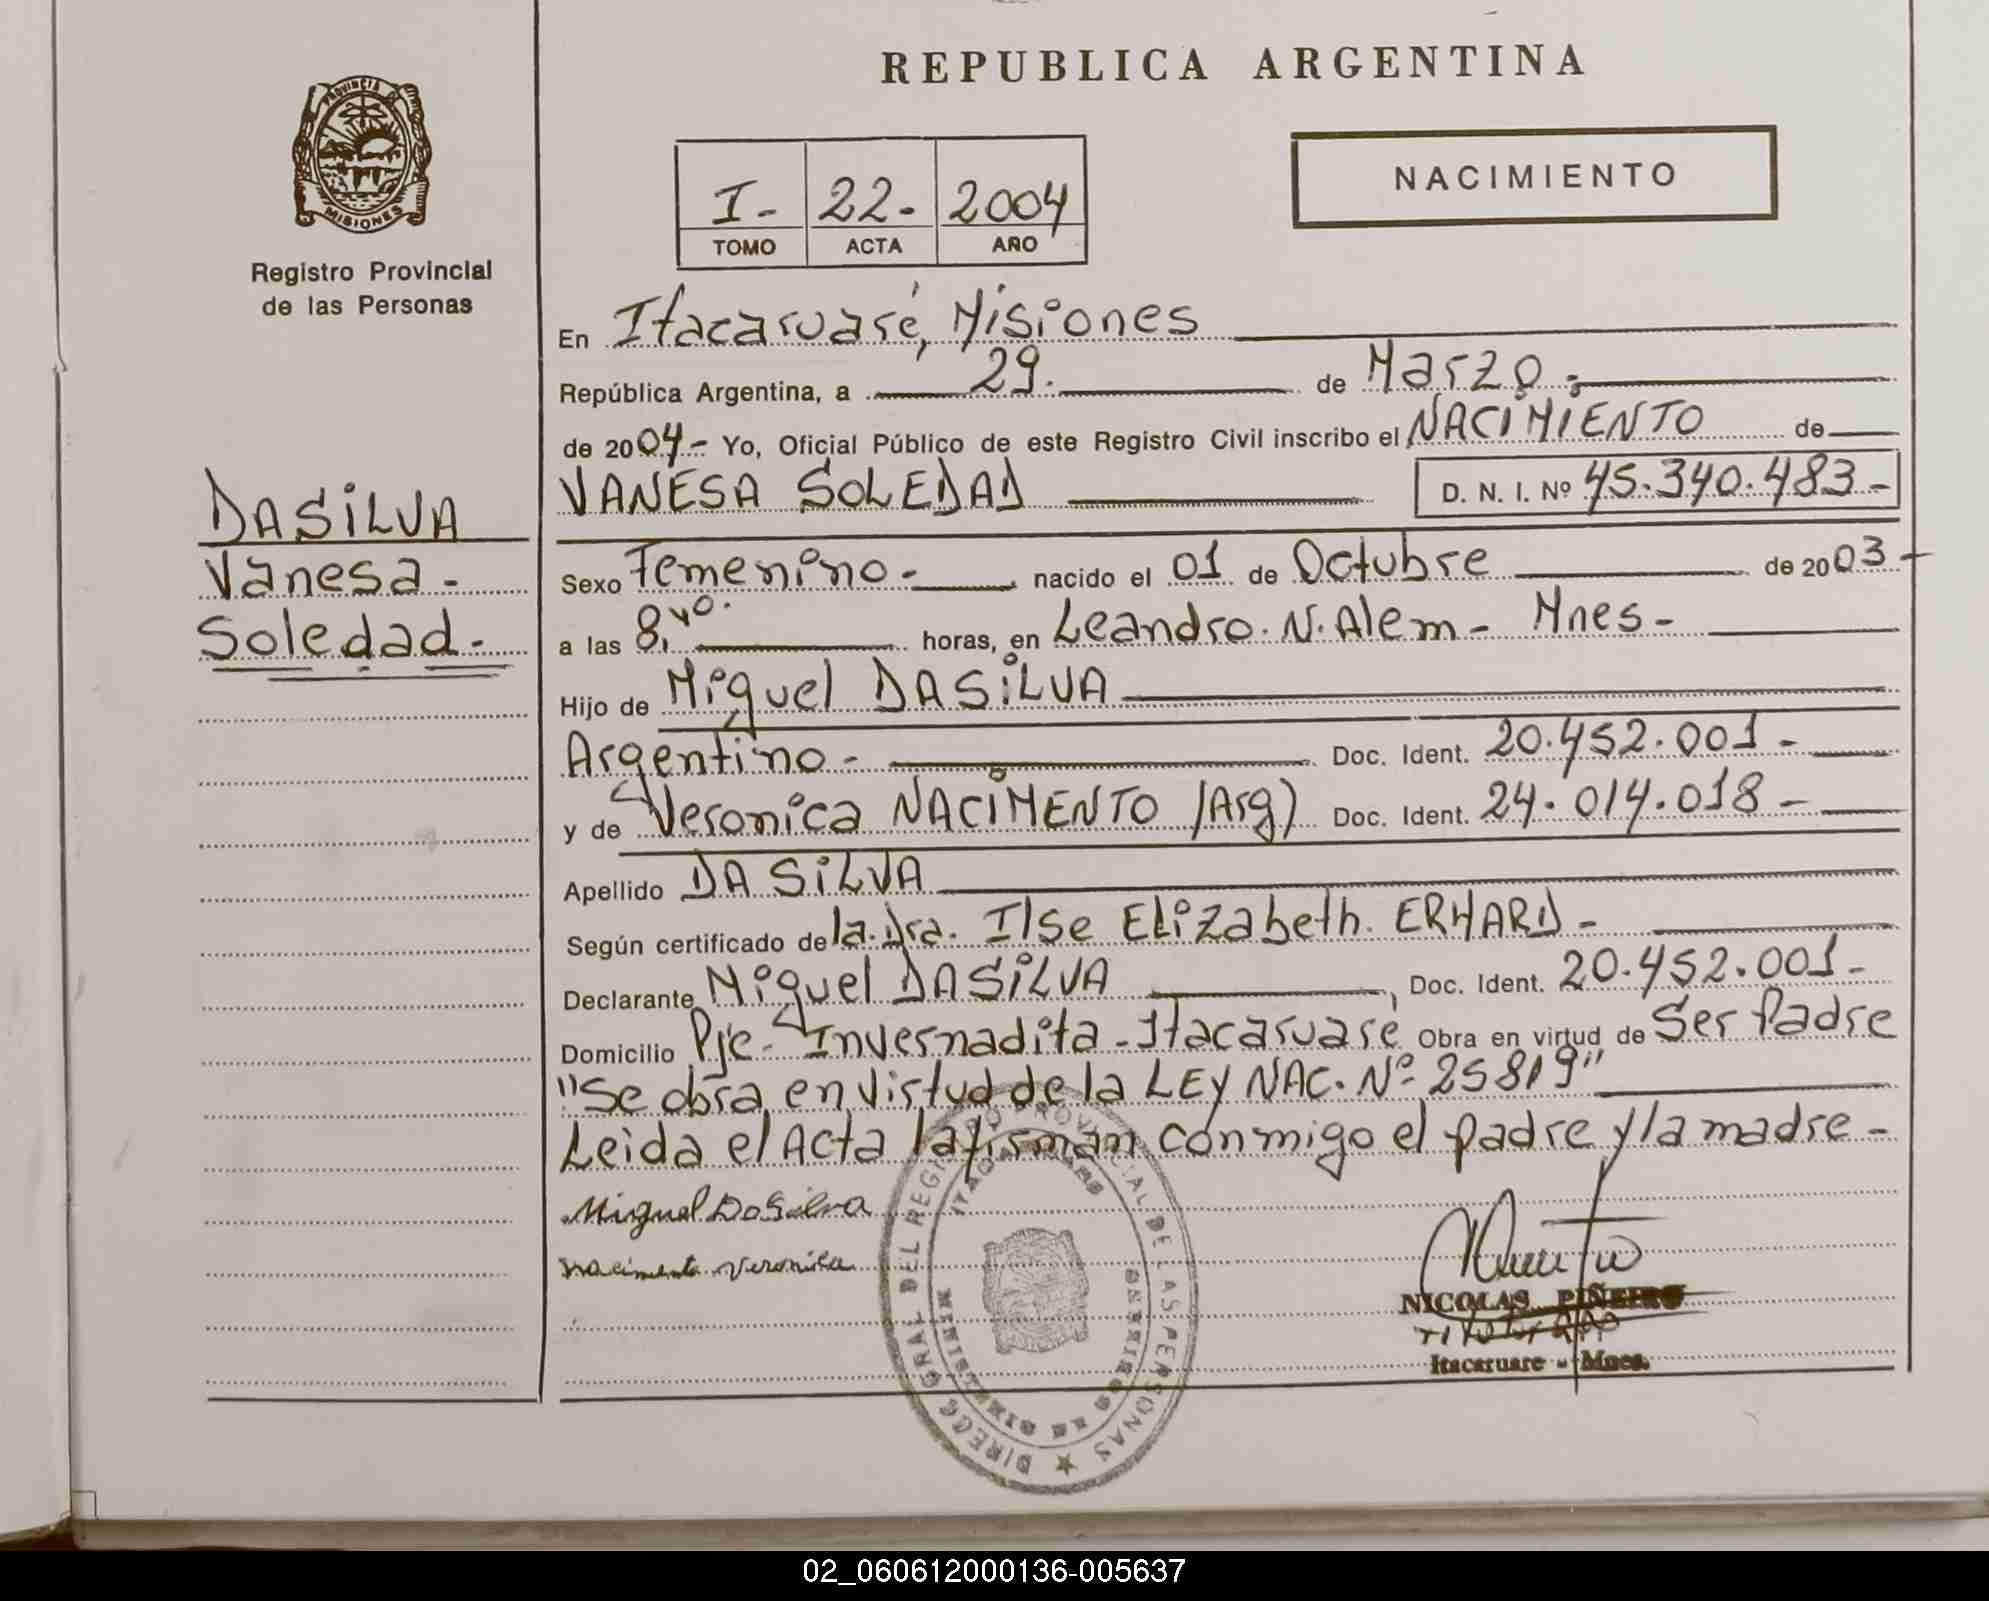 REPUBLICA ARGENTINA
PROVINCIA DE
MISIONES
Registro Provincial
de las Personas
NACIMIENTO
I- 22- 2004
TOMO ACTA AÑO
En Itacaruaré, Misiones
República Argentina, a 29. de Marzo.-
de 2004- Yo, Oficial Público de este Registro Civil inscribo el NACIMIENTO de
VANESA SOLEDAD D. N. I. Nº 45.340.483-
DASILVA
Vanesa-
Soledad-
Sexo Femenino- nacido el 01 de Octubre de 2003-
a las 8,40. horas, en Leandro. N. Alem- Mnes-
Hijo de Miguel DASILVA
Argentino- Doc. Ident. 20.452.001-
y de Veronica NACIMENTO (Arg) Doc. Ident. 24.014.018-
Apellido DA SILVA
Según certificado de la. Dra. Ilse Elizabeth. ERHARD-
Declarante Miguel DASILVA, Doc. Ident. 20.452.001-
Domicilio Pje- Invernadita-Itacaruaré Obra en virtud de Ser Padre
"Se obra en virtud de la LEY NAC. Nº 25819"
Leida el Acta la firman conmigo el padre y la madre-
Miguel DaSilva
Nacimento Veronica
DIRECC GRAL DEL REGISTRO PROVINCIAL DE LAS PERSONAS
NICOLAS PIÑEIRO
Itacaruare - Mnes.
02_060612000136-005637